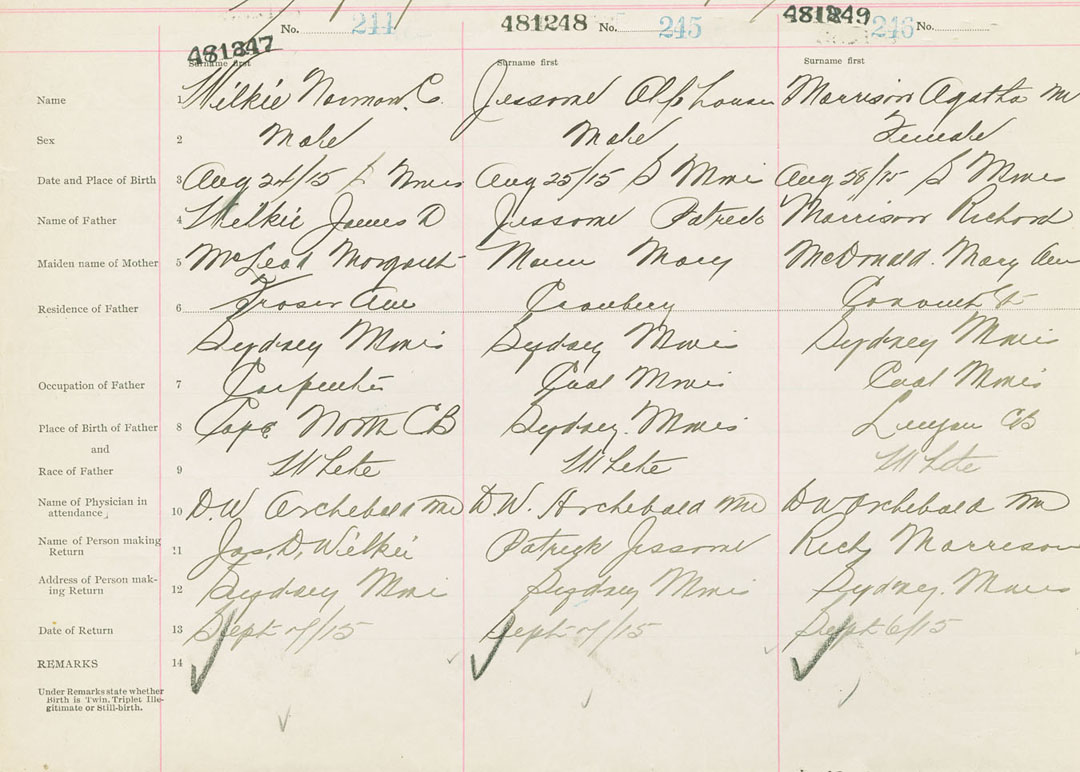 No. 244 481248 No. 245 481249 246 No.
481247
Surname first Surname first Surname first
Name 1 Wilkie Norman C. Jessome Alphonsus Morrison Agatha M
Sex 2 Male Male Female
Date and Place of Birth 3 Aug 24/15 S Mines Aug 25/15 S Mines Aug 28/15 S Mines
Name of Father 4 Wilkie James D Jessome Patrick Morrison Richard
Maiden name of Mother 5 McLeod Margaret Mary McDonald. Mary Ann
Residence of Father 6 Fraser Ave Cranberry Convent St
Sydney Mines Sydney Mines Sydney Mines
Occupation of Father 7 Carpenter Coal Miner Coal Miner
Place of Birth of Father 8 Cape North CB Sydney Mines Lingan CB
and
Race of Father 9 White White White
Name of Physician in
attendance 10 D.W Archibald MD D.W. Archibald MD DW Archibald MD
Name of Person making
Return 11 Jas. D. Wilkie Patrick Jessome Rich Morrison
Address of Person mak-
ing Return 12 Sydney Mines Sydney Mines Sydney Mines
Date of Return 13 Sept /15 Sept /15 Sept 6/15
REMARKS 14
Under Remarks state whether
Birth is Twin, Triplet Ille-
gitimate or Still-birth.